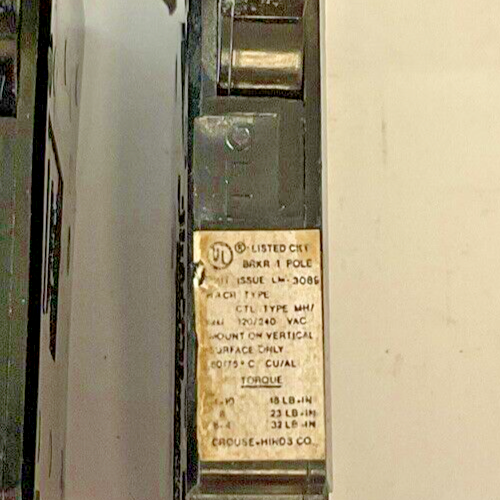 UL ® LISTED CKT
BRKR 1 POLE
ISSUE LM-3089
HACR TYPE
CTL TYPE MH/
120/240 VAC
MOUNT ON VERTICAL
SURFACE ONLY
60/75°C CU/AL
TORQUE
-10 18 LB-IN
8 23 LB-IN
6-4 32 LB-IN
CROUSE-HINDS CO.